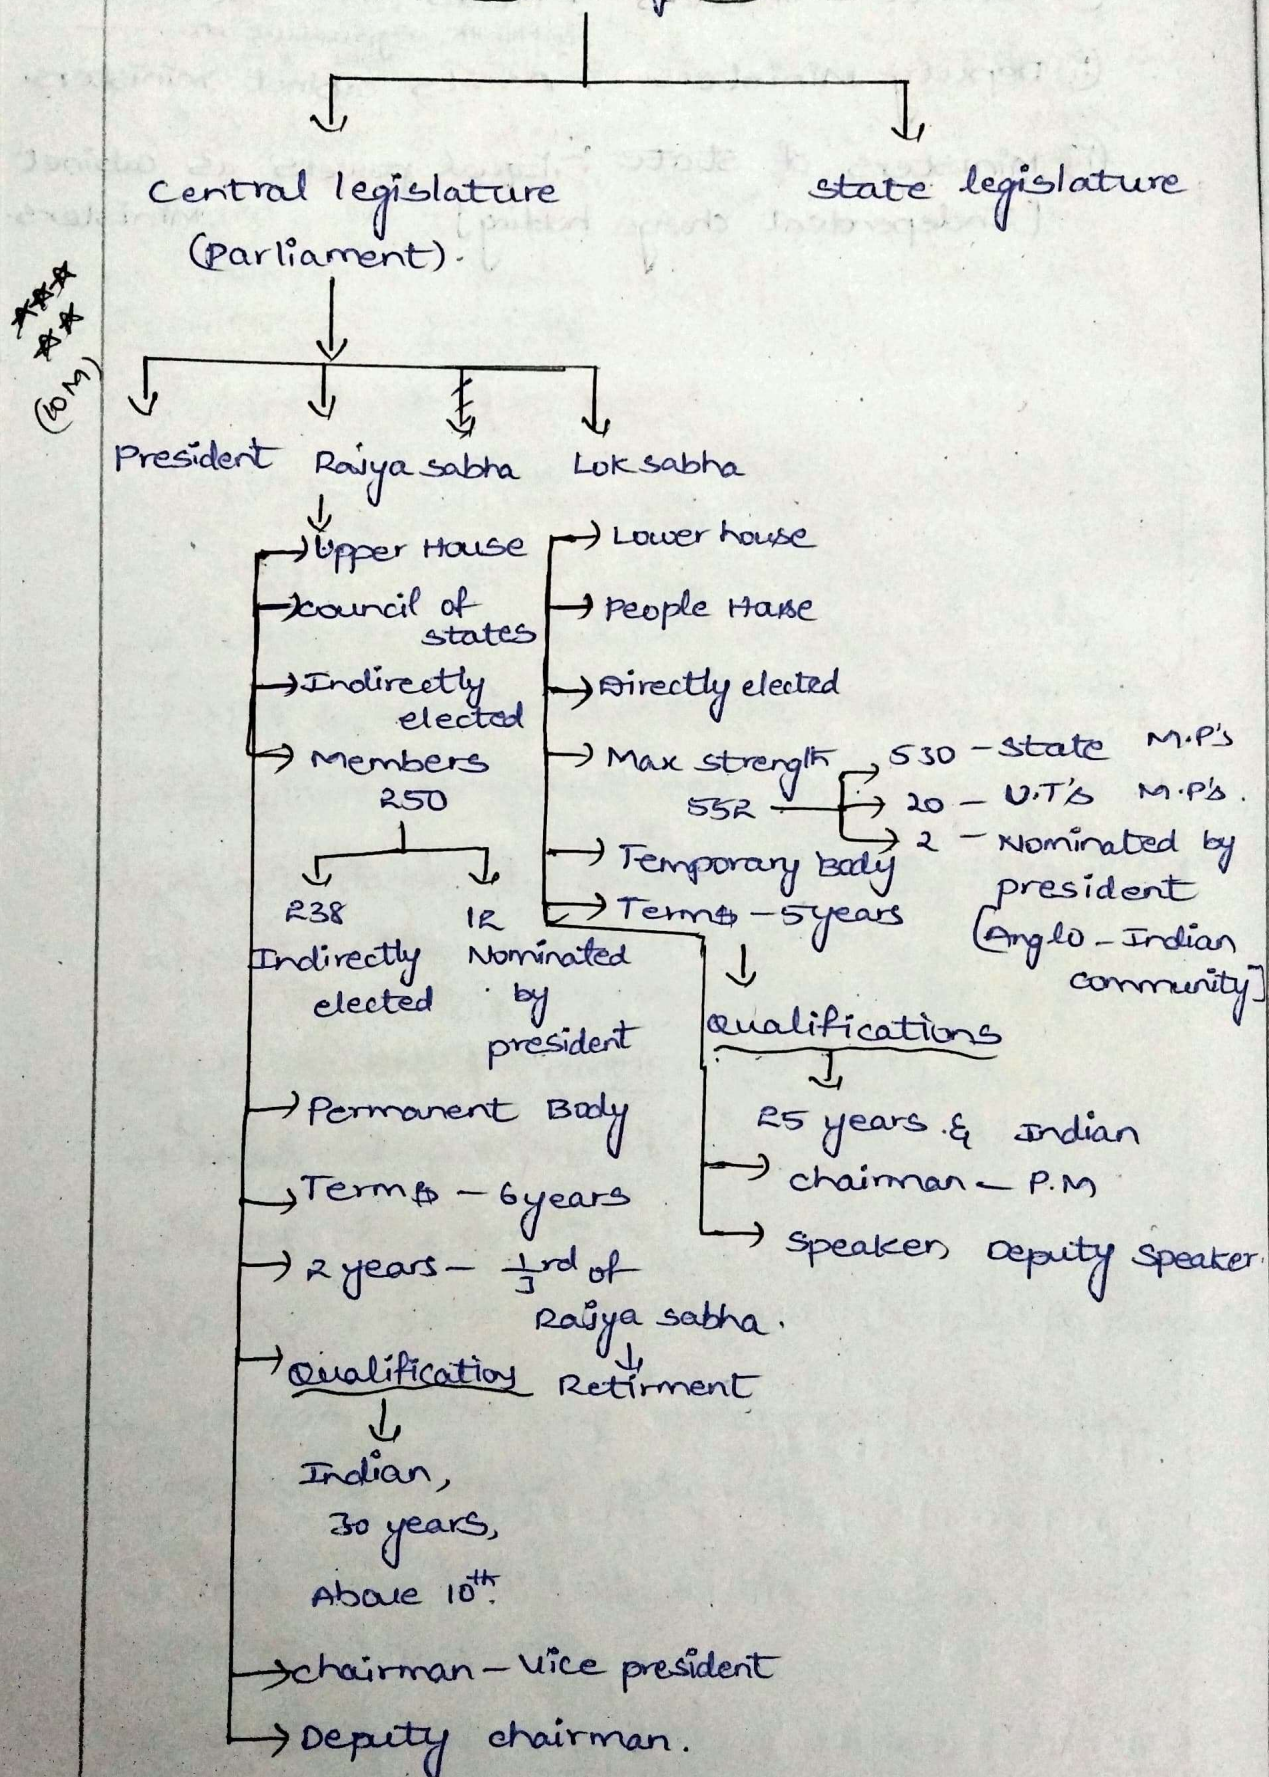 Central legislature
(Parliament).
State legislature
(10 M)
President
Rajya sabha
Lok sabha
Upper House
council of
states
Indirectly
elected
Members
250
238
Indirectly
elected
12
Nominated
by
president
Permanent Body
Terms - 6 years
2 years - 1/3rd of
Rajya sabha.
Retirment
Qualification
Indian,
30 years,
Above 10th.
chairman - Vice president
Deputy chairman.
Lower house
People House
Directly elected
Max strength
552
530 - State M.P's
20 - U.T's M.P's.
2 - Nominated by
president
(Anglo-Indian
community]
Temporary Body
Terms - 5 years
Qualifications
25 years & Indian
chairman - P.M
Speaker, Deputy Speaker.